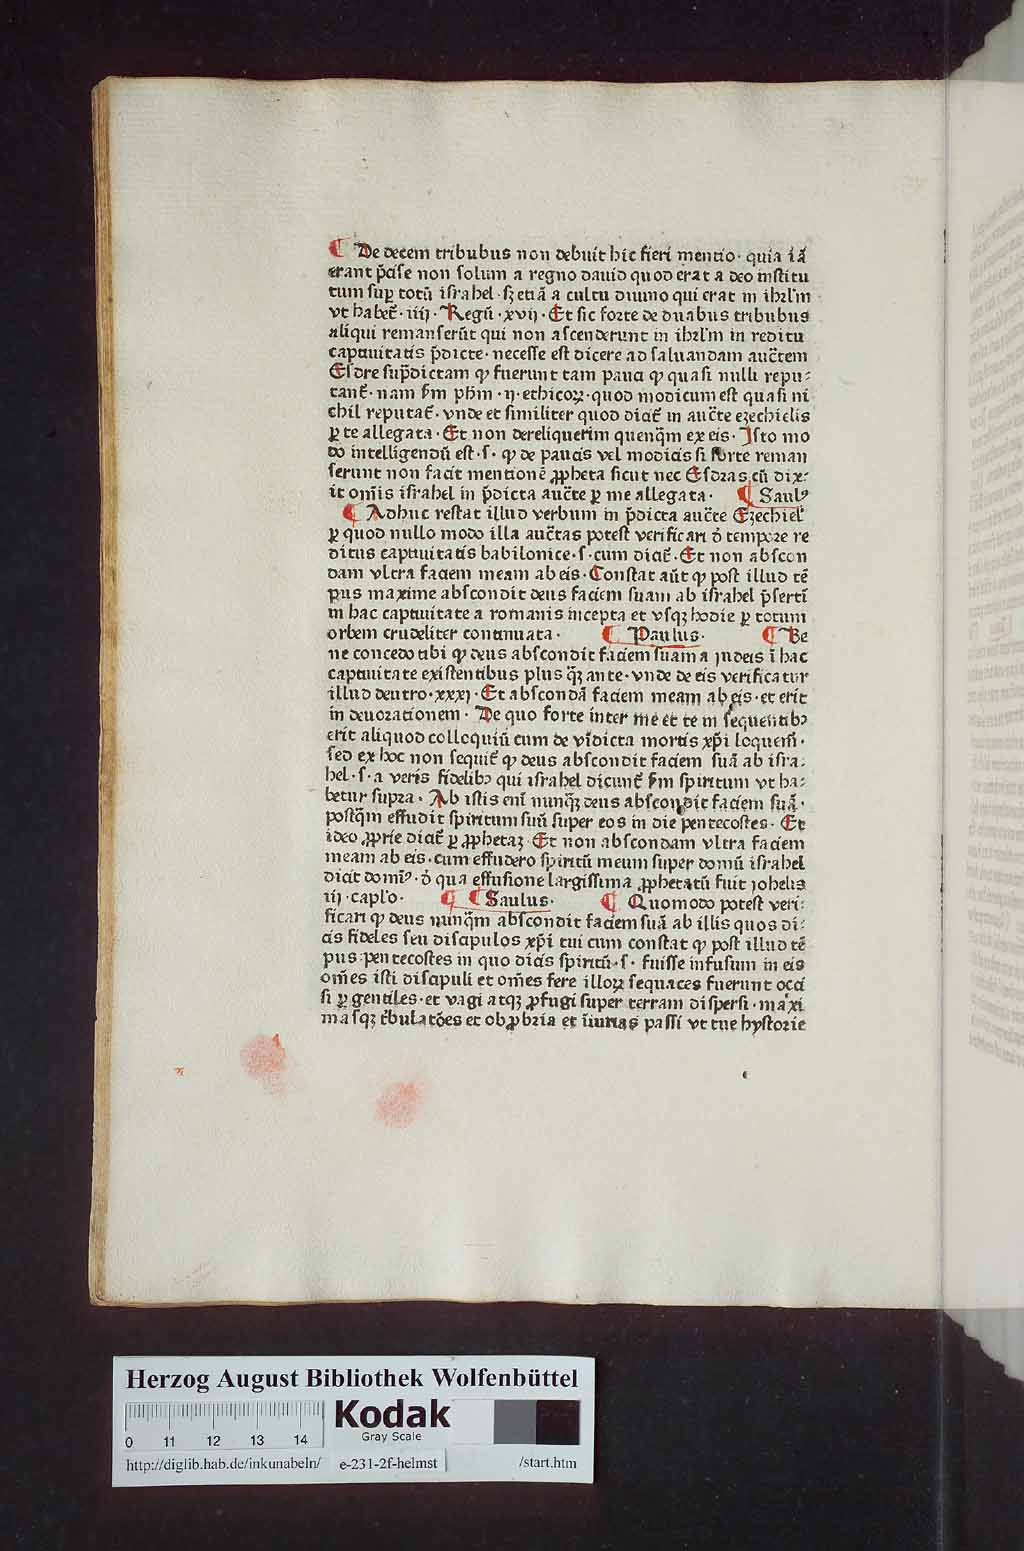 ¶ De decem tribubus non debuit hic fieri mentio· quia iã
erant p̃cise non solum a regno dauid quod erat a deo institu
tum suꝑ totũ israhel·sʒ etiã a cultu diuino qui erat in ihrl'm
vt habet᷑·iiij·Regũ·xvij·Et sic forte de duabus tribubus
aliqui remanserũt qui non ascenderunt in ihrl'm in reditu
captiuitatis p̃dicte·necesse est dicere ad saluandam auc̃tem
Esdre sup̃dictam ꝙ fuerunt tam pauci ꝙ quasi nulli repu⸗
tant᷑·nam s̃m ph̃m·ij·ethicoꝝ·quod modicum est quasi ni
chil reputat᷑·vnde et similiter quod dicit᷑ in auc̃te ezechielis
ꝑ te allegata·Et non dereliquerim quenq̃m ex eis·Isto mo
do intelligendũ est·s·ꝙ de paucis vel modicis si forte reman
serunt non facit mentionẽ ꝓpheta sicut nec Esdras cũ dix⸗
it om̃is israhel in p̃dicta auc̃te ꝑ me allegata· ¶ Saulꝰ
¶ Adhuc restat illud verbum in p̃dicta auc̃te Ezechiel'
ꝑ quod nullo modo illa auc̃tas potest verificari d̛ tempore re
ditus captiuitatis babilonice·s·cum dicit᷑·Et non abscon
dam vltra faciem meam ab eis·Constat aũt ꝙ post illud tẽ
pus maxime abscondit deus faciem suam ab israhel p̃sertĩ
in hac captiuitate a romanis incepta et vsqʒ hodie ꝑ totum
orbem crudeliter continuata· ¶ Paulus· ¶ Be
ne concedo tibi ꝙ deus abscondit faciem suam a iudeis ĩ hac
captiuitate existentibus plus q̃ʒ ante·vnde de eis verificatur
illud deutro·xxxj·Et abscondã faciem meam ab eis·et erit
in deuorationem·De quo forte inter me et te in sequentibꝰ
erit aliquod colloquiũ cum de vĩdicta mortis xp̃i loquem̃·
sed ex hoc non sequit᷑ ꝙ deus abscondit faciem suã ab isra⸗
hel·s·a veris fidelibꝰ qui israhel dicunt᷑ s̃m spiritum vt ha⸗
betur supra·Ab istis eni᷑ nunq̃ʒ deus abscondit faciem suã·
postq̃m effudit spiritum suũ super eos in die pentecostes·Et
ideo ꝓprie dicit᷑ ꝑ ꝓphetaʒ·Et non abscondam vltra faciem
meam ab eis·cum effudero spiritũ meum super domũ israhel
dicit domĩꝰ·d̛ qua effusione largissima ꝓphetatũ fuit iohelis
iij·capl'o· ¶ ¶ Saulus· ¶ Quomodo potest veri⸗
ficari ꝙ deus nunq̃m abscondit faciem suã ab illis quos di⸗
cis fideles seu discipulos xp̃i tui cum constat ꝙ post illud tẽ
pus pentecostes in quo dicis spiritũ·s·fuisse infusum in eis
om̃es isti discipuli et om̃es fere illoꝝ sequaces fuerunt occi
si ꝑ gentiles·et vagi atqʒ ꝓfugi super terram dispersi·maxi
masqʒ tr̃bulatões et obꝓbria et iniurias passi vt tue hystorie
Herzog August Bibliothek Wolfenbüttel
Kodak
Gray Scale
0 11 12 13 14
http://diglib.hab.de/inkunabeln/ e-231-2f-helmst /start.htm